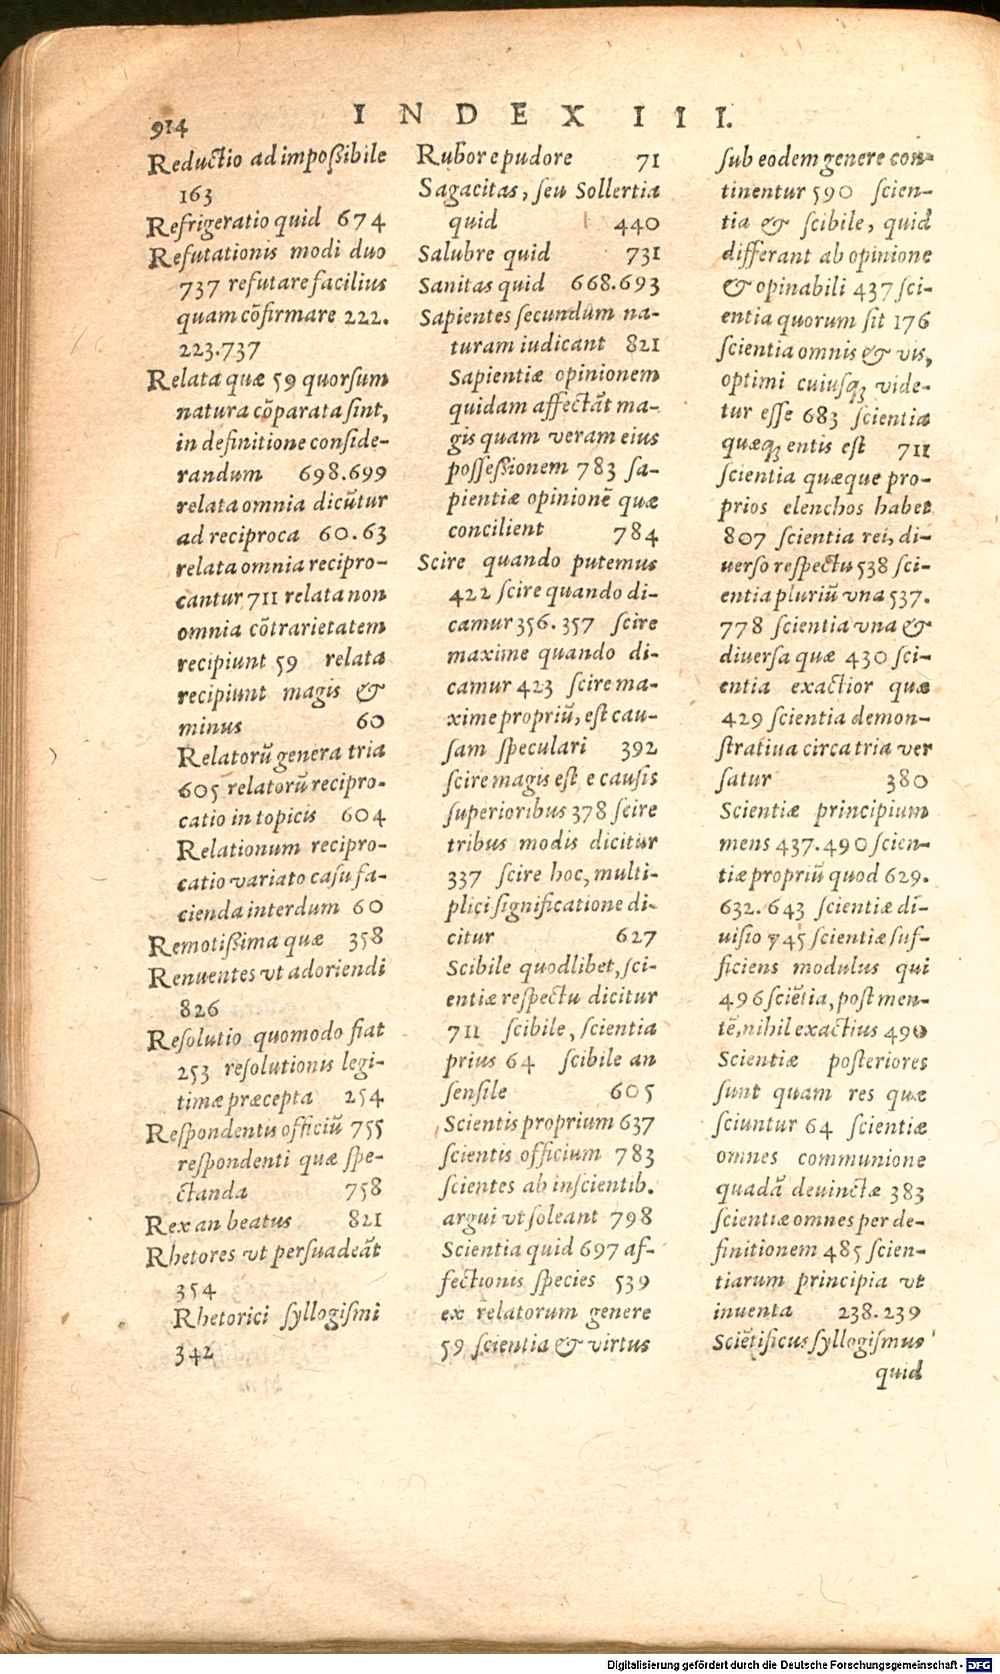 914
INDEX III.
Reductio ad impoßibile
163
Refrigeratio quid 674
Refutationis modi duo
737 refutare facilius
quam cõfirmare 222.
223.737
Relata quæ 59 quorſum
natura cõparata ſint,
in definitione conſide-
randum 698.699
relata omnia dicũtur
ad reciproca 60.63
relata omnia recipro-
cantur 711 relata non
omnia cõtrarietatem
recipiunt 59 relata
recipiunt magis &
minus 60
Relatorũ genera tria
605 relatorũ recipro-
catio in topicis 604
Relationum recipro-
catio variato caſu fa-
cienda interdum 60
Remotißima quæ 358
Renuentes vt adoriendi
826
Reſolutio quomodo fiat
253 reſolutionis legi-
timæ præcepta 254
Reſpondentis officiũ 755
reſpondenti quæ ſpe-
ctanda 758
Rex an beatus 821
Rhetores vt perſuadeãt
354
Rhetorici ſyllogiſmi
342
Rubor e pudore 71
Sagacitas, ſeu Sollertia
quid 440
Salubre quid 731
Sanitas quid 668.693
Sapientes ſecundum na-
turam iudicant 821
Sapientiæ opinionem
quidam affectãt ma-
gis quam veram eius
poſſeßionem 783 ſa-
pientiæ opinionẽ quæ
concilient 784
Scire quando putemus
422 ſcire quando di-
camur 356.357 ſcire
maxime quando di-
camur 423 ſcire ma-
xime propriũ, eſt cau-
ſam ſpeculari 392
ſcire magis eſt e cauſis
ſuperioribus 378 ſcire
tribus modis dicitur
337 ſcire hoc, multi-
plici ſignificatione di-
citur 627
Scibile quodlibet, ſci-
entiæ reſpectu dicitur
711 ſcibile, ſcientia
prius 64 ſcibile an
ſenſile 605
Scientis proprium 637
ſcientis officium 783
ſcientes ab inſcientib.
argui vt ſoleant 798
Scientia quid 697 af-
fectionis ſpecies 539
ex relatorum genere
59 ſcientia & virtus
ſub eodem genere con-
tinentur 590 ſcien-
tia & ſcibile, quid
differant ab opinione
& opinabili 437 ſci-
entia quorum ſit 176
ſcientia omnis & vis,
optimi cuiuſq; vide-
tur eſſe 683 ſcientia
quæq; entis eſt 711
ſcientia quæque pro-
prios elenchos habet
807 ſcientia rei, di-
uerſo reſpectu 538 ſci-
entia pluriũ vna 537.
778 ſcientia vna &
diuerſa quæ 430 ſci-
entia exactior quæ
429 ſcientia demon-
ſtratiua circa tria ver
ſatur 380
Scientiæ principium
mens 437.490 ſcien-
tiæ propriũ quod 629.
632.643 ſcientiæ di-
uiſio 745 ſcientiæ ſuf-
ficiens modulus qui
496 ſciẽtia, poſt men-
tẽ, nihil exactius 490
Scientiæ poſteriores
ſunt quam res quæ
ſciuntur 64 ſcientiæ
omnes communione
quadã deuinctæ 383
ſcientiæ omnes per de-
finitionem 485 ſcien-
tiarum principia vt
inuenta 238.239
Sciẽtificus ſyllogiſmus
quid
Digitalisierung gefördert durch die Deutsche Forschungsgemeinschaft - DFG